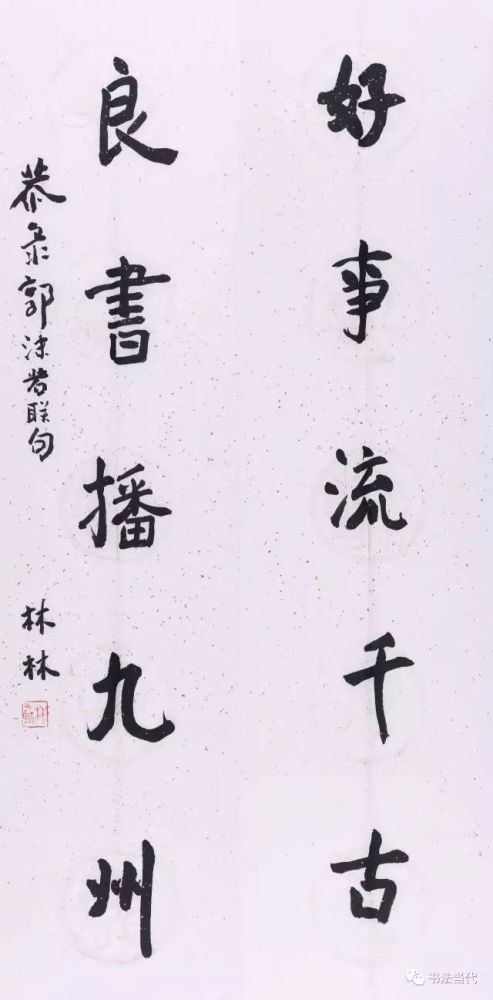 好事流千古
良書播九州
恭录郭沫若联句
林林
书法当代